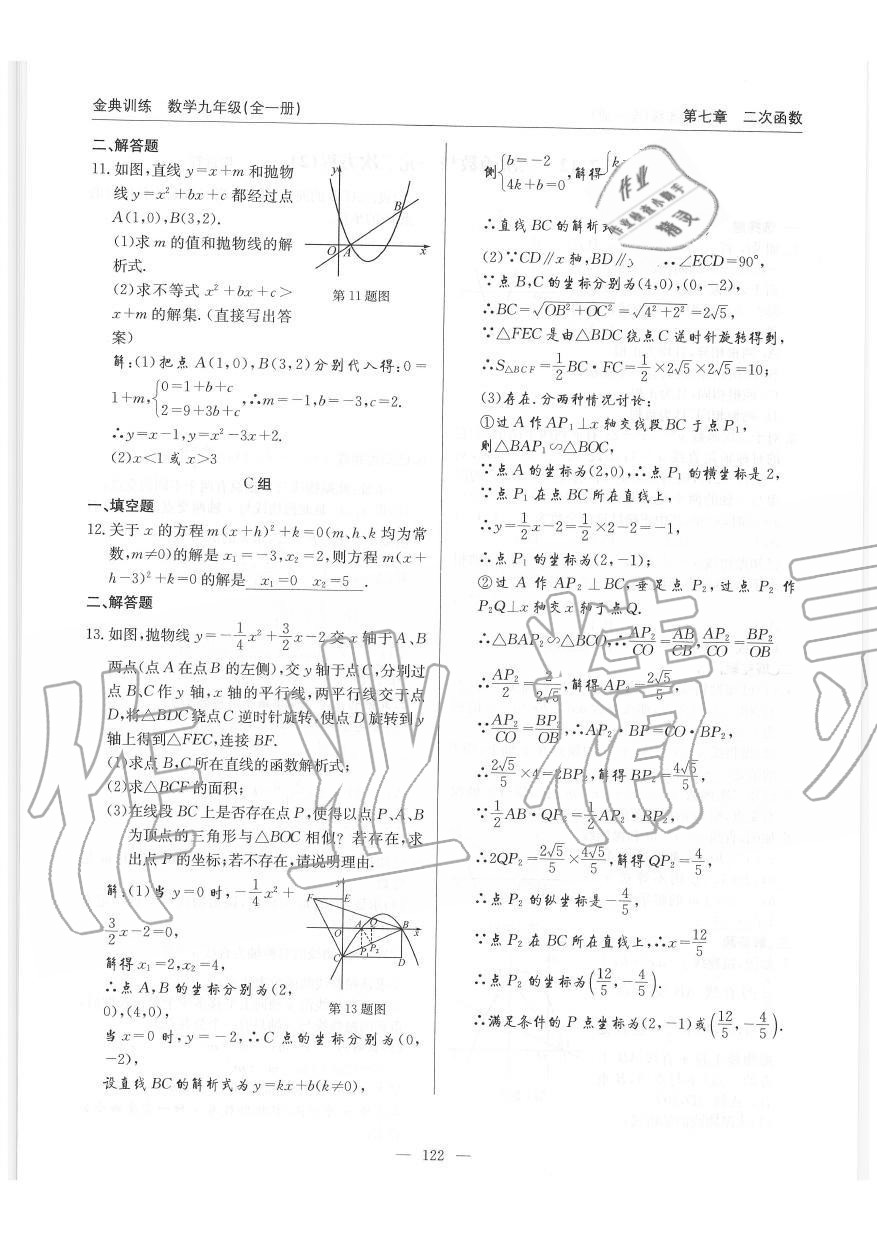 金典训练 数学九年级(全一册)
第七章 二次函数
二、解答题
11. 如图,直线 y=x+m 和抛物
线 y=x²+bx+c 都经过点
A(1,0),B(3,2).
(1)求 m 的值和抛物线的解
析式.
(2)求不等式 x²+bx+c>
x+m 的解集.(直接写出答
案)
y
B
O A x
第 11 题图
解:(1)把点 A(1,0),B(3,2)分别代入得:0=
1+m,{0=1+b+c
2=9+3b+c,∴m=-1,b=-3,c=2.
∴y=x-1,y=x²-3x+2.
(2)x<1 或 x>3
C 组
一、填空题
12. 关于 x 的方程 m(x+h)²+k=0(m、h、k 均为常
数,m≠0)的解是 x₁=-3,x₂=2,则方程 m(x+
h-3)²+k=0 的解是 x₁=0 x₂=5 .
二、解答题
13. 如图,抛物线 y=-1/4x²+3/2x-2 交 x 轴于 A、B
两点(点 A 在点 B 的左侧),交 y 轴于点 C,分别过
点 B、C 作 y 轴,x 轴的平行线,两平行线交于点
D,将△BDC 绕点 C 逆时针旋转,使点 D 旋转到 y
轴上得到△FEC,连接 BF.
(1)求点 B、C 所在直线的函数解析式;
(2)求△BCF 的面积;
(3)在线段 BC 上是否存在点 P,使得以点 P、A、B
为顶点的三角形与△BOC 相似?若存在,求
出点 P 的坐标;若不存在,请说明理由.
解:(1)当 y=0 时,-1/4x²+
3/2x-2=0,
解得 x₁=2,x₂=4,
∴点 A,B 的坐标分别为(2,
0),(4,0),
y
F E
A Q B
O x
P₁ P₂
C D
第 13 题图
当 x=0 时,y=-2,∴C 点的坐标分别为(0,
-2),
设直线 BC 的解析式为 y=kx+b(k≠0),
侧{b=-2
4k+b=0,解得{k
∴直线 BC 的解析
(2)∵CD∥x 轴,BD∥y ∴∠ECD=90°,
∵点 B,C 的坐标分别为(4,0),(0,-2),
∴BC=√(OB²+OC²)=√(4²+2²)=2√5,
∵△FEC 是由△BDC 绕点 C 逆时针旋转得到,
∴S△BCF=1/2BC·FC=1/2×2√5×2√5=10;
(3)存在.分两种情况讨论:
①过 A 作 AP₁⊥x 轴交线段 BC 于点 P₁,
则△BAP₁∽△BOC,
∵点 A 的坐标为(2,0),∴点 P₁ 的横坐标是 2,
∵点 P₁ 在点 BC 所在直线上,
∴y=1/2x-2=1/2×2-2=-1,
∴点 P₁ 的坐标为(2,-1);
②过 A 作 AP₂⊥BC,垂足点 P₂,过点 P₂ 作
P₂Q⊥x 轴交 x 轴于点 Q.
∴△BAP₂∽△BCO,∴AP₂/CO=AB/CB,AP₂/CO=BP₂/OB
∴AP₂/2=2/2√5,解得 AP₂=2√5/5,
∵AP₂/CO=BP₂/OB,∴AP₂·BP=CO·BP₂,
∴2√5/5×4=2BP₂,解得 BP₂=4√5/5,
∵1/2AB·QP₂=1/2AP₂·BP₂,
∴2QP₂=2√5/5×4√5/5,解得 QP₂=4/5,
∴点 P₂ 的纵坐标是-4/5,
∵点 P₂ 在 BC 所在直线上,∴x=12/5
∴点 P₂ 的坐标为(12/5,-4/5).
∴满足条件的 P 点坐标为(2,-1)或(12/5,-4/5).
— 122 —
作业
作业检查小助手
精灵
作业精灵